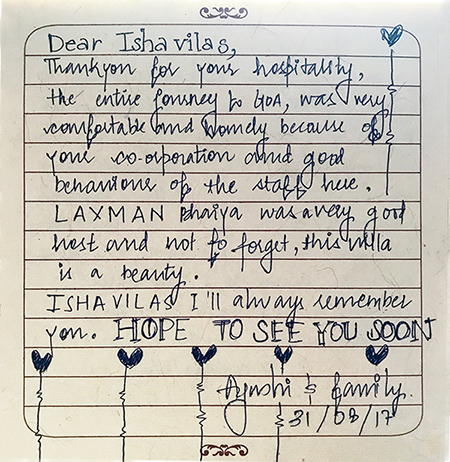 Dear Ishavilas,
Thankyou for your hospitality,
the entire journey to GOA, was very
comfortable and homely because of
your co-orporation and good
behaviour of the staff here.
LAXMAN Bhaiya was a very good
host and not to forget, this villa
is a beauty.
ISHAVILAS I'll always remember
you. HOPE TO SEE YOU SOON
Ayushi & family.
31/03/17